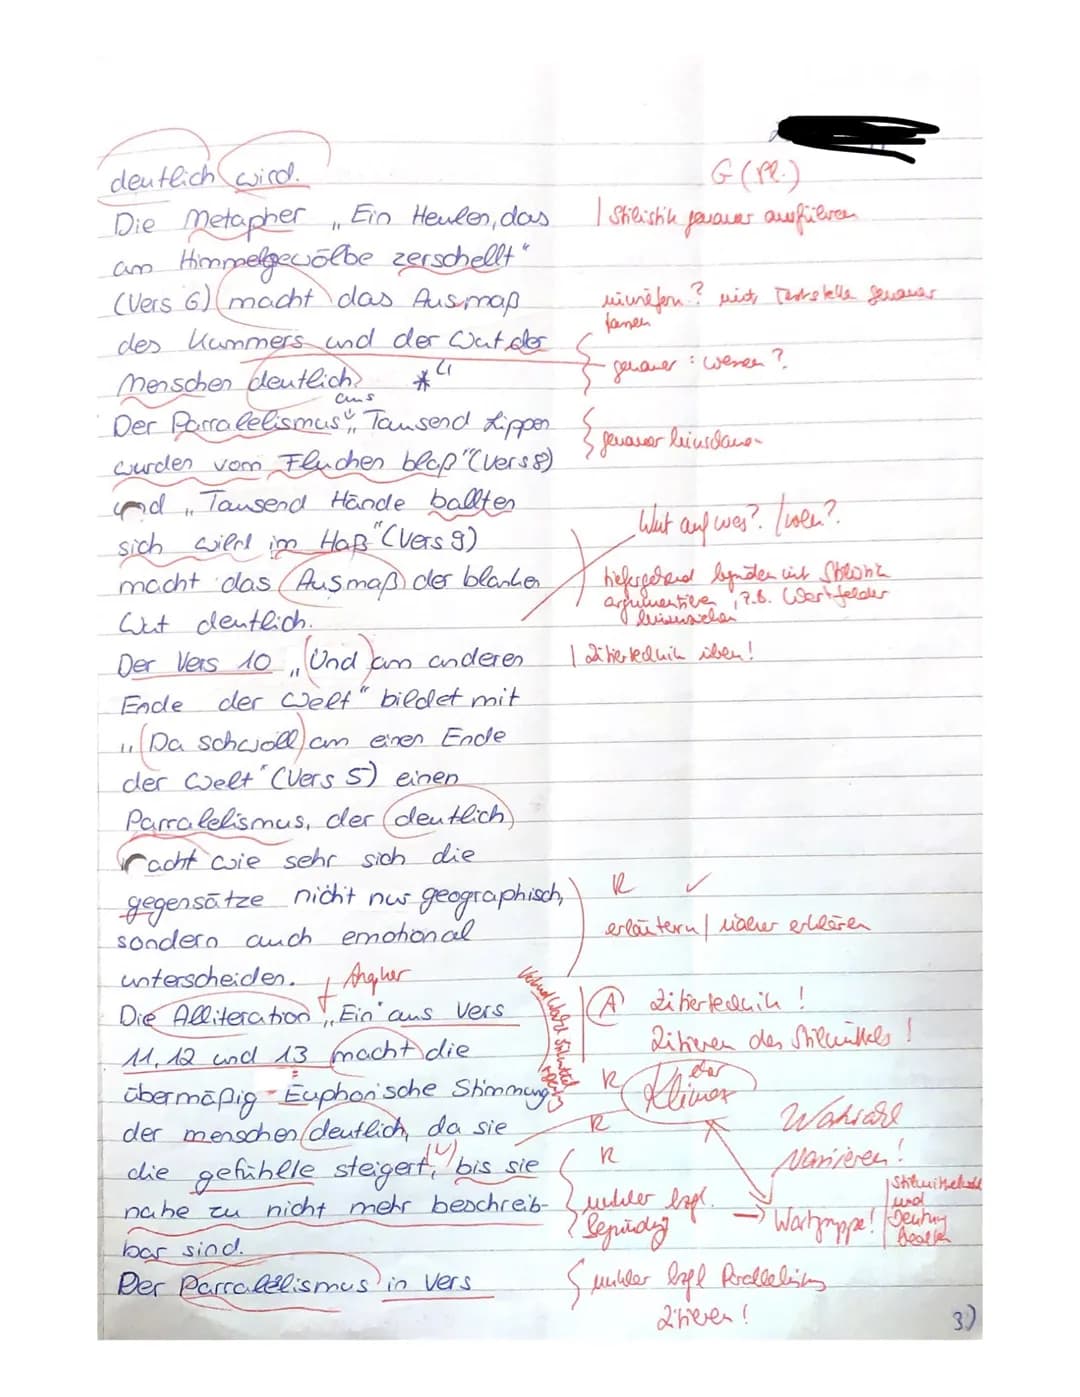 deutlich wird.
G (Pl.)
Die Metapher „Ein Heulen, das
| Stilistik genauer ausführen
am Himmelgewölbe zerschellt"
(Vers 6) macht das Ausmaß
inwiefern? mit Textstelle genauer
fassen
des Kummers und der Wut der
genauer: wessen?
Menschen deutlich. *
aus
Der Parralelismus „Tausend Lippen
genauer
wurden vom Fluchen blaß" (Vers 8)
und „Tausend Hände ballten
Wut auf wes?
sich wild im Haß" (Vers 9)
macht das Ausmaß der blanken
tiefergehend
argumentieren, z.B. Wortfelder
Wut deutlich.
Der Vers 10 „Und am anderen
| Zitiertechnik üben!
Ende der Welt" bildet mit
„Da schwoll am einen Ende
der Welt" (Vers 5) einen
Parralelismus, der deutlich
macht wie sehr sich die
gegensätze nicht nur geographisch,
R ✓
sondern auch emotional
erläutern / näher erklären
unterscheiden.
Die Alliteration „Ein" aus Vers
A Zitiertechnik!
11, 12 und 13 macht die
Zitieren des Stilmittels!
übermäßig Euphorische Stimmung
R der Klimax
der menschen deutlich, da sie
R Wortwahl
die gefühlle steigert, bis sie
R variieren!
nahe zu nicht mehr beschreib-
unklar bzgl. → Wortgruppe!
und
Deutung
bar sind.
Der Parralelismus in Vers
unklar bzgl Parallelismus
Zitieren!
3)